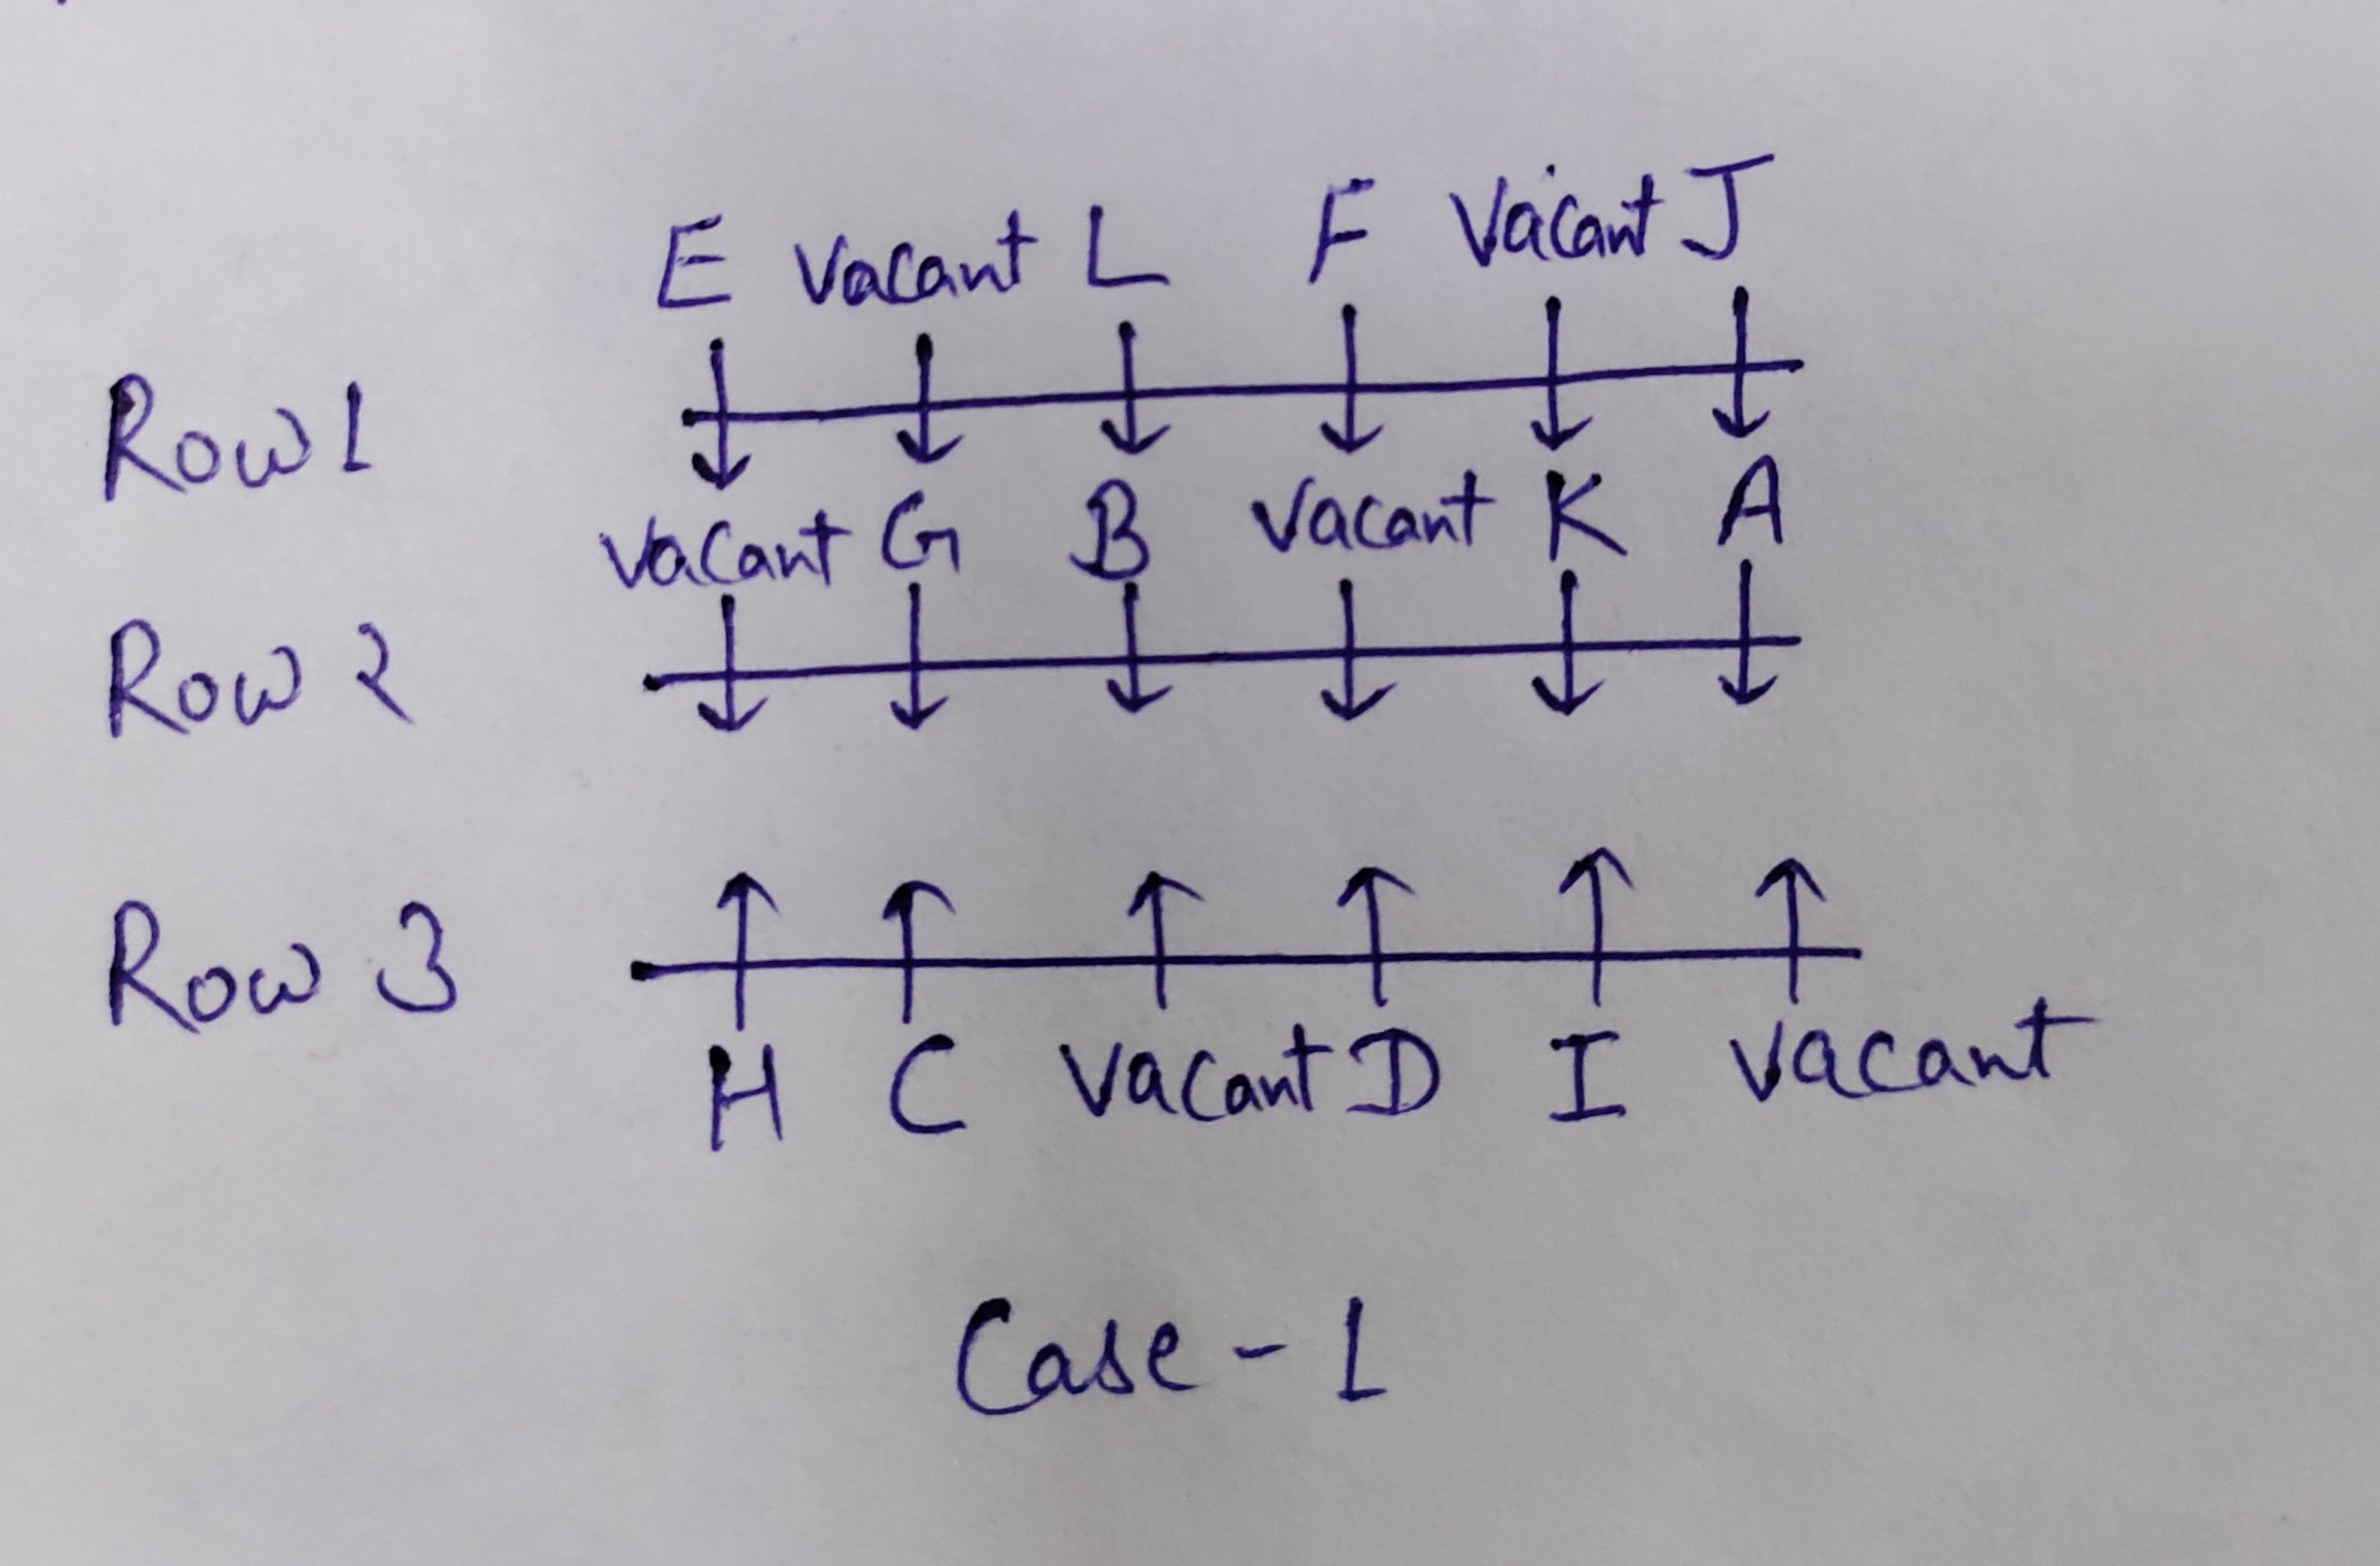 E Vacant L F Vacant J
Row 1
Vacant G B Vacant K A
Row 2
Row 3
H C Vacant D I Vacant
Case - 1